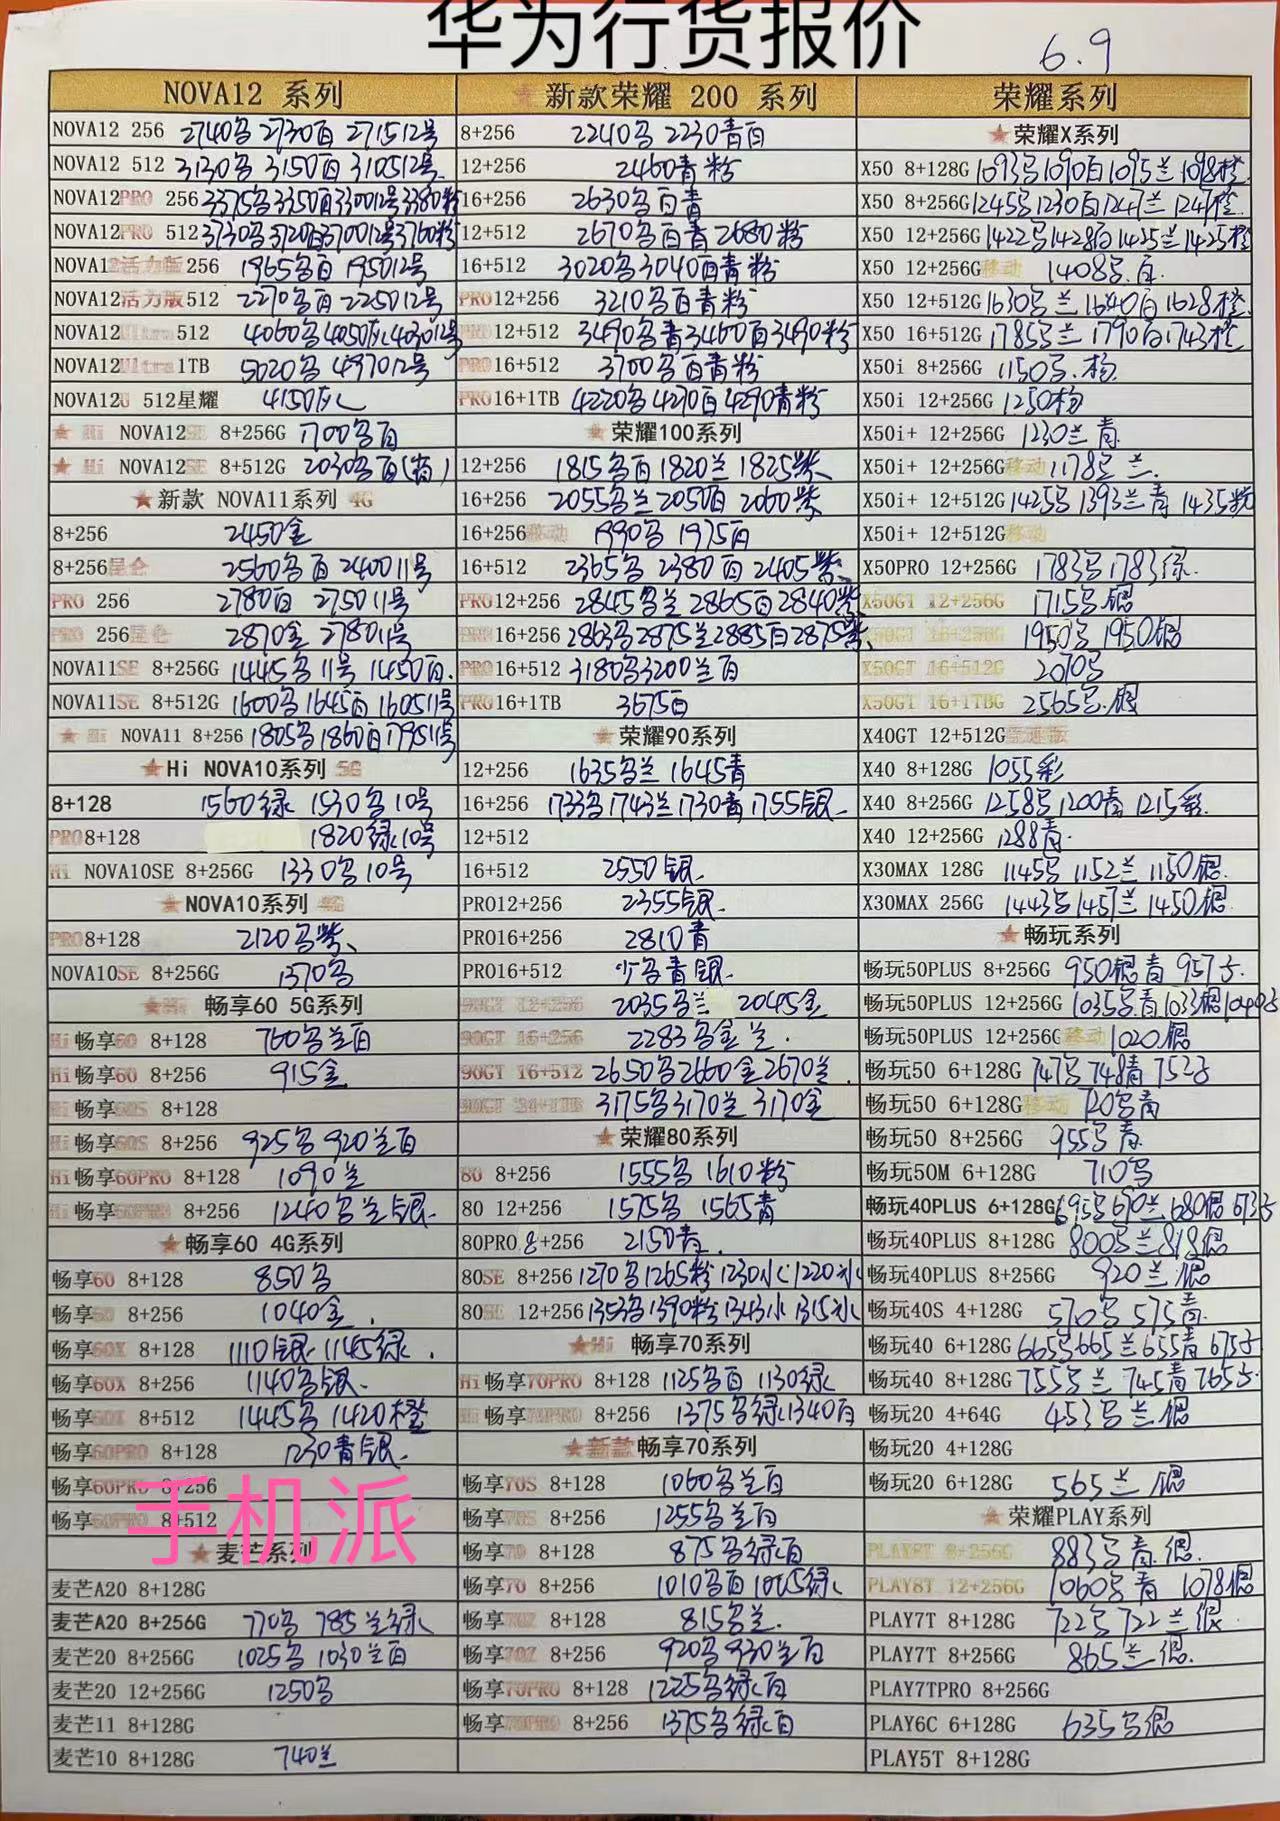 华为行货报价
6.9
NOVA12 系列
NOVA12 256 2740 2730白 271512号
NOVA12 512 3130 3150白 310512号
NOVA12PRO 256 3375 3350白 330012号 3380粉
NOVA12PRO 512 3730 3720白 370012号 3760粉
NOVA12活力版256 1965白 195012号
NOVA12活力版512 2270白 225012号
NOVA12Ultra512 4060 4050灰 403012号
NOVA12Ultra1TB 5020 497012号
NOVA12U 512星耀 4150灰
Hi NOVA12SE 8+256G 1700白
Hi NOVA12SE 8+512G 2030白
新款 NOVA11系列 4G
8+256 2450金
8+256昆仑 2560白 240011号
PRO 256 2780白 275011号
PRO 256昆仑 2870金 278011号
NOVA11SE 8+256G 1445 11号 1450白
NOVA11SE 8+512G 1600 1645白 160511号
Hi NOVA11 8+256 1805 1860白 179511号
Hi NOVA10系列 5G
8+128 1560绿 1530 10号
PRO8+128 1820绿10号
Hi NOVA10SE 8+256G 1330 10号
NOVA10系列 4G
PRO8+128 2120紫
NOVA10SE 8+256G 1370
Hi 畅享60 5G系列
Hi畅享60 8+128 760兰白
Hi畅享60 8+256 915金
Hi畅享60S 8+128
Hi畅享60S 8+256 925 920兰白
Hi畅享60PRO 8+128 1090兰
Hi畅享60PRO 8+256 1240兰银
畅享60 4G系列
畅享60 8+128 850
畅享60 8+256 1040金
畅享60X 8+128 1110银 1145绿
畅享60X 8+256 1140银
畅享60X 8+512 1445 1420橙
畅享60PRO 8+128 1230青银
畅享60PRO 8+256
畅享60PRO 8+512
手机派
麦芒系列
麦芒A20 8+128G
麦芒A20 8+256G 770 785兰绿
麦芒20 8+256G 1025 1030兰白
麦芒20 12+256G 1250
麦芒11 8+128G
麦芒10 8+128G 740兰
新款荣耀 200 系列
8+256 2240 2230青白
12+256 2460青粉
16+256 2630白青
12+512 2670白青 2680粉
16+512 3020 3040白青粉
PRO12+256 3210白青粉
PRO12+512 3490青 3460白 3490粉
PRO16+512 3700白青粉
PRO16+1TB 4220 4270白 4290青粉
荣耀100系列
12+256 1815白 1820兰 1825紫
16+256 2055兰 2050白 2060紫
16+256移动 1990 1975白
16+512 2365 2380白 2405紫
PRO12+256 2845兰 2865白 2840紫
PRO16+256 2863 2875兰 2885白 2875紫
PRO16+512 3180 3200兰白
PRO16+1TB 3675白
荣耀90系列
12+256 1635兰 1645青
16+256 1733 1743兰 1730青 1755银
12+512
16+512 2550银
PRO12+256 2355银
PRO16+256 2810青
PRO16+512 少青银
90GT 12+256 2035兰 2045金
90GT 16+256 2283金兰
90GT 16+512 2650 2660金 2670兰
90GT 24+1TB 3175 3170兰 3170金
荣耀80系列
80 8+256 1555 1610粉
80 12+256 1575 1565青
80PRO 8+256 2150青
80SE 8+256 1270 1265粉 1230 1220
80SE 12+256 1353 1390粉 1343 1315
Hi 畅享70系列
Hi畅享70PRO 8+128 1125白 1130绿
Hi畅享70PRO 8+256 1375绿 1340白
新款畅享70系列
畅享70S 8+128 1060兰白
畅享70S 8+256 1255兰白
畅享70 8+128 875绿白
畅享70 8+256 1010白 1005绿
畅享70Z 8+128 815兰
畅享70Z 8+256 920 930兰白
畅享70PRO 8+128 1225绿白
畅享70PRO 8+256 1375绿白
荣耀系列
荣耀X系列
X50 8+128G 1093 1090白 1095兰 1098橙
X50 8+256G 1245 1230白 1247兰 1247橙
X50 12+256G 1422 1428白 1425兰 1425橙
X50 12+256G移动 1408白
X50 12+512G 1630兰 1640白 1628橙
X50 16+512G 1785兰 1790白 1743橙
X50i 8+256G 1150
X50i 12+256G 1250
X50i+ 12+256G 1230兰青
X50i+ 12+256G移动 1178兰
X50i+ 12+512G 1425 1393兰青 1435粉
X50i+ 12+512G移动
X50PRO 12+256G 1783 1783绿
X50GT 12+256G 1715银
X50GT 16+256G 1950 1950银
X50GT 16+512G 2070
X50GT 16+1TBG 2565银
X40GT 12+512G竞速版
X40 8+128G 1055彩
X40 8+256G 1258 1200青 1215彩
X40 12+256G 1288青
X30MAX 128G 1145 1152兰 1150银
X30MAX 256G 1443 1457兰 1450银
畅玩系列
畅玩50PLUS 8+256G 950银青 957
畅玩50PLUS 12+256G 1035青 1033银
畅玩50PLUS 12+256G移动 1020银
畅玩50 6+128G 747 748青 752
畅玩50 6+128G移动 720青
畅玩50 8+256G 955青
畅玩50M 6+128G 710
畅玩40PLUS 6+128G 695 690兰 680银 673
畅玩40PLUS 8+128G 800兰 818银
畅玩40PLUS 8+256G 920兰银
畅玩40S 4+128G 570 575青
畅玩40 6+128G 665 665兰 655青 675
畅玩40 8+128G 755兰 745青 765
畅玩20 4+64G 453兰银
畅玩20 4+128G
畅玩20 6+128G 565兰银
荣耀PLAY系列
PLAY8T 8+256G 883青银
PLAY8T 12+256G 1060青 1078银
PLAY7T 8+128G 722 722兰银
PLAY7T 8+256G 865兰银
PLAY7TPRO 8+256G
PLAY6C 6+128G 635银
PLAY5T 8+128G